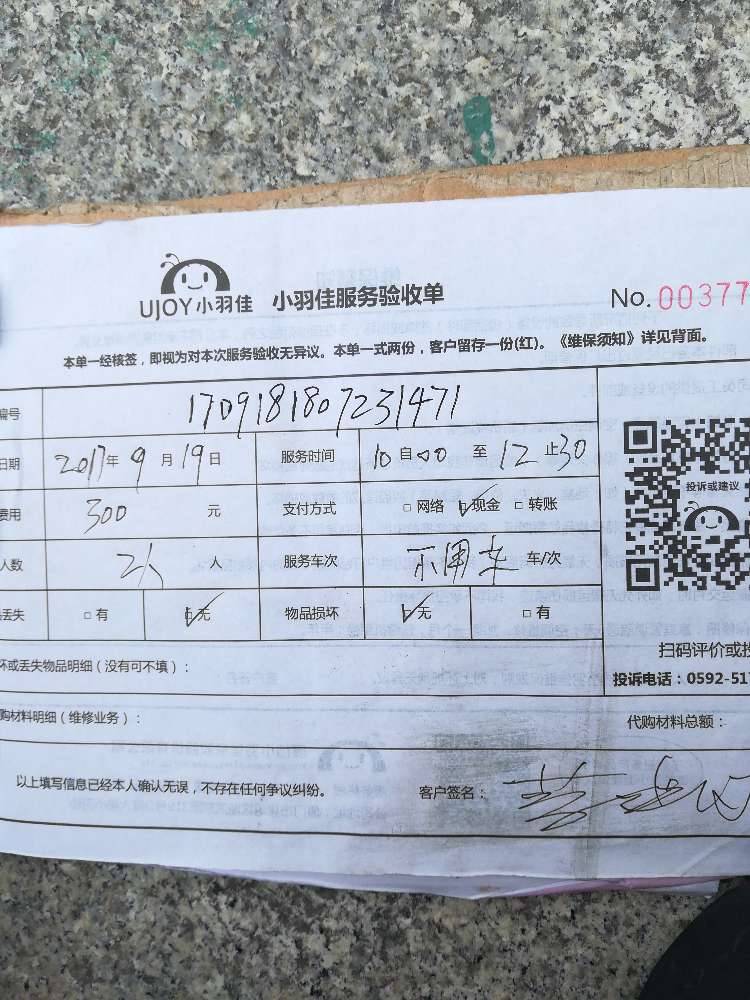 UJOY小羽佳 小羽佳服务验收单 No.00377
本单一经核签，即视为对本次服务验收无异议。本单一式两份，客户留存一份(红)。《维保须知》详见背面。
编号 1709181807231471
日期 2017年9月19日 服务时间 10自00至12止30
费用 300 元 支付方式 □网络 ☑现金 □转账
人数 2人 人 服务车次 不用车 车/次
丢失 □有 ☑无 物品损坏 ☑无 □有
投诉或建议
扫码评价或投
坏或丢失物品明细（没有可不填）： 投诉电话：0592-517
购材料明细（维修业务）： 代购材料总额：
以上填写信息已经本人确认无误，不存在任何争议纠纷。 客户签名：